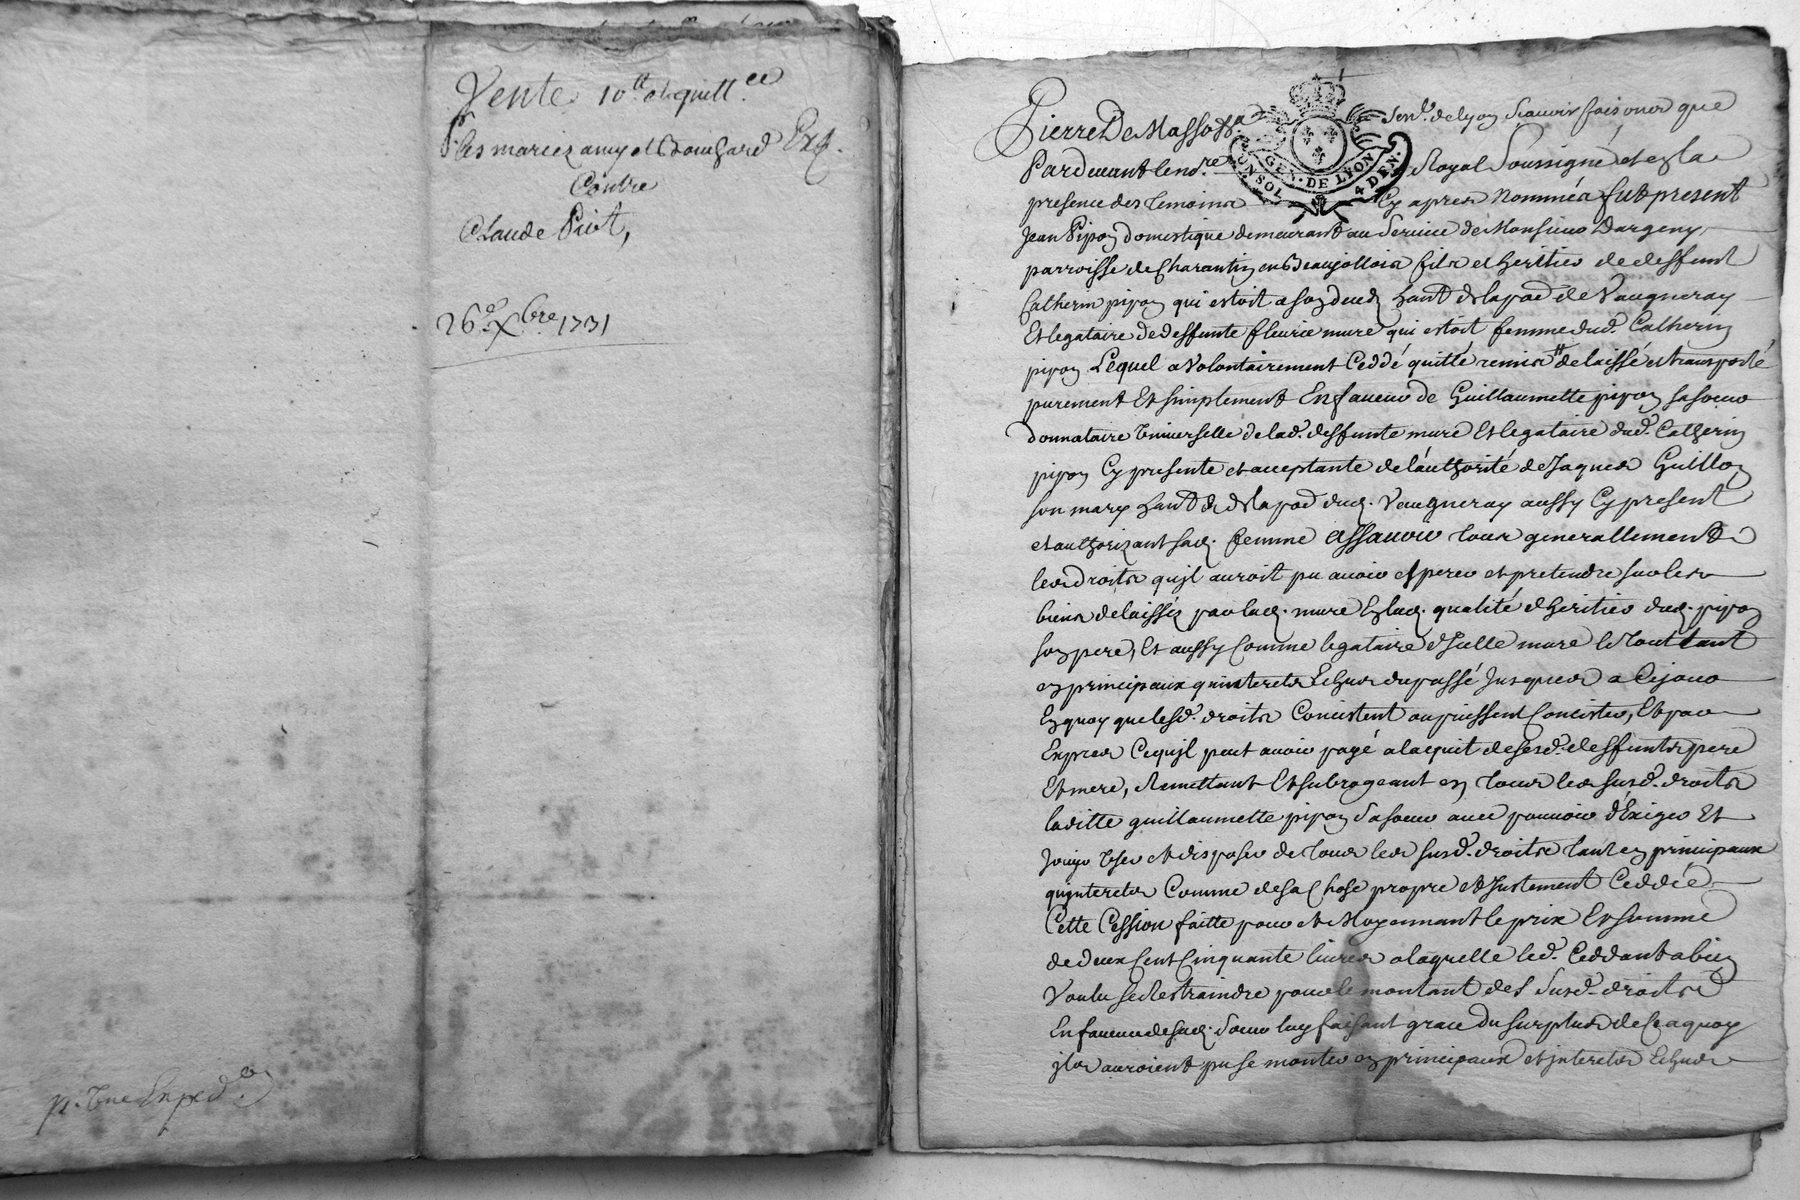 Vente 10ᵗᵗ et quittᶜᵉ
Pʳ les mariez amy et Bouchard
Contre
Claude Piot,
26ᵉ Xbre 1731
p. Une Expedᵒⁿ
Pierre De Masso Senᵈ. de Lyon Scavoir faisons que
GEN. DE LYON
CONSOL 4 DEN.
Pardevant le noʳᵉ Royal Soussigné et en la
presence des temoins Cy apres nommés fut present
Jean Pipon domestique demeurant au Service de Monsieur Dargeny
parroisse de Charantin en Beaujollois fils et heritier de deffunt
Catherin pipon qui estoit a son deceds hant de la pasᵉ de Vaugneray
Et legataire de deffunte fleurie mure qui estoit femme dud. Catherin
pipon Lequel a Volontairement Ceddé quitté remis delaissé et transporté
purement Et simplement En faveur de Guillaumette pipon sa soeur
donnataire Universelle de lad. deffunte mure Et legataire dud. Catherin
pipon Cy presente et acceptante de l'authorité de Jaques Guillon
son mary hant de la pasᵉ dud. Vaugneray aussy Cy present
et authorizant sad. femme assavoir tous generallement
les droits qu'jl auroit pu avoir esperer et pretendre sur les
biens delaissés par lad. mure En lad. qualité d'heritier dud. pipon
son pere, Et aussy Comme legataire d'Icelle mure le tout tant
en principaux qu'interets Echus du passé Jusques a Cejour
En quoy que lesd. droits Concistent ou puissent Concister, Et par
Expres Cequ'jl peut avoir payé a lacquit de sesd. deffunts pere
Et mere, Remettant Et subrogeant en tous les susd. droits
laditte guillaumette pipon Sa soeur avec pouvoir d'Exiger Et
Jouyr User et disposer de tous les susd. droits tant en principaux
qu'interets Comme de sa Chose propre et Justement Ceddée
Cette Cession faitte pour et Moyennant le prix Et somme
de deux Cent Cinquante livres a laquelle led. Ceddant a bien
Voulu se Restraindre pour le montant des Susd. droits
En faveur de sad. Soeur luy faisant grace du surplus de Ceaquoy
jls auroient pu se monter en principaux et jnterets Echus